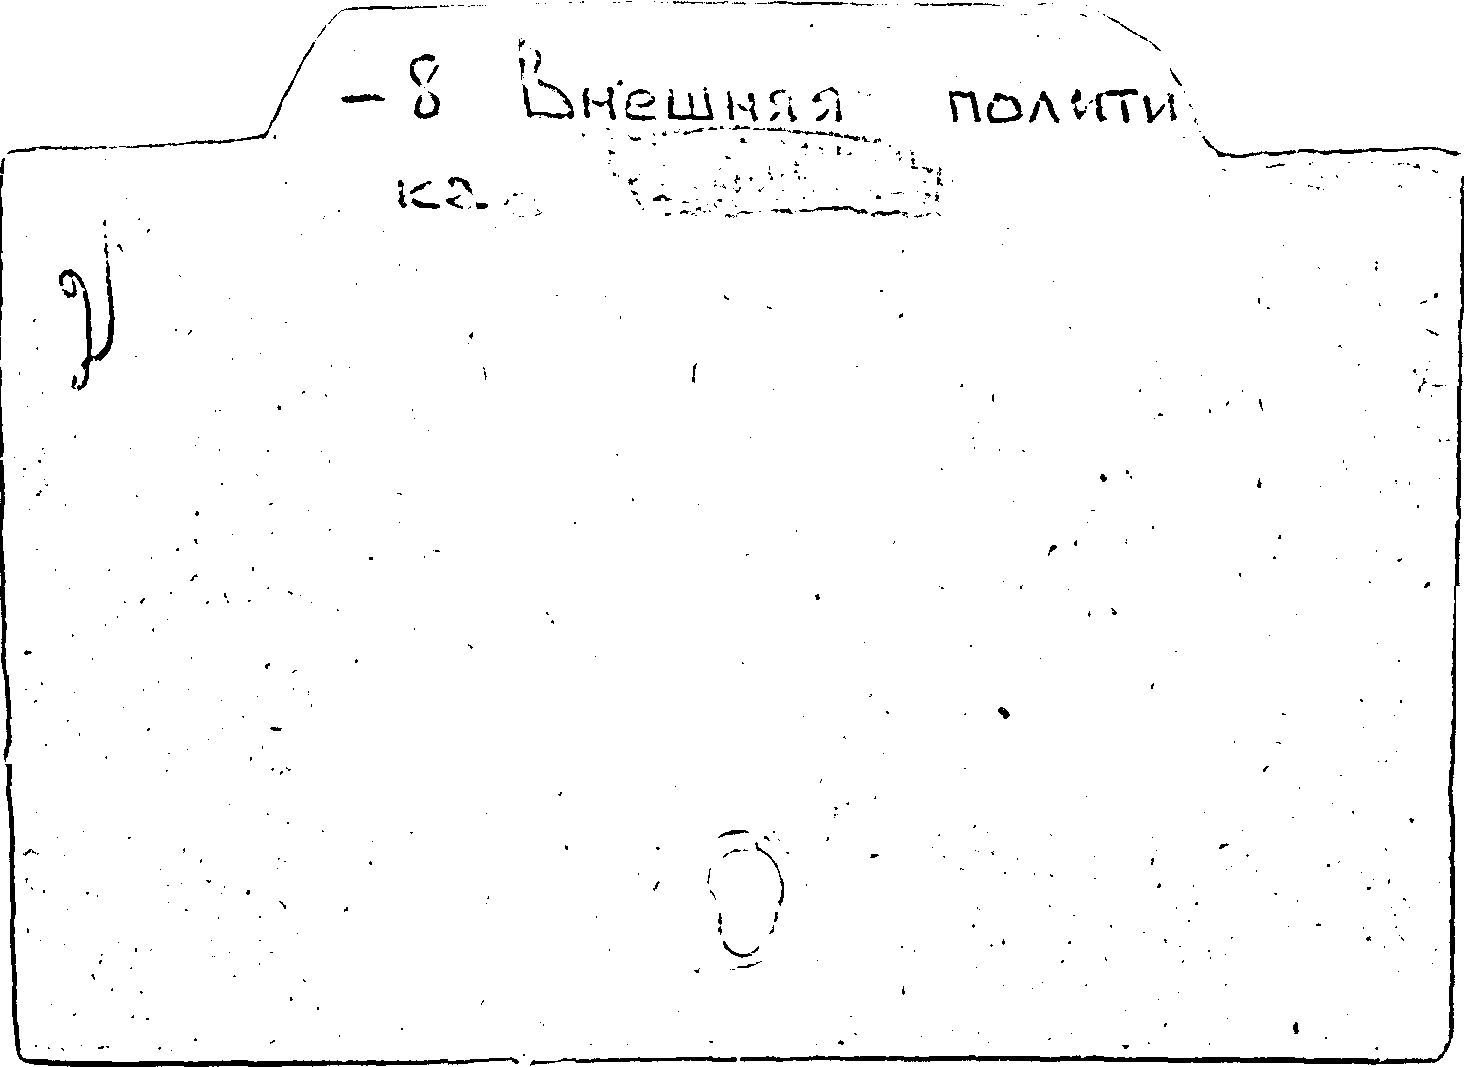 - 8 Внешняя полити
ка.